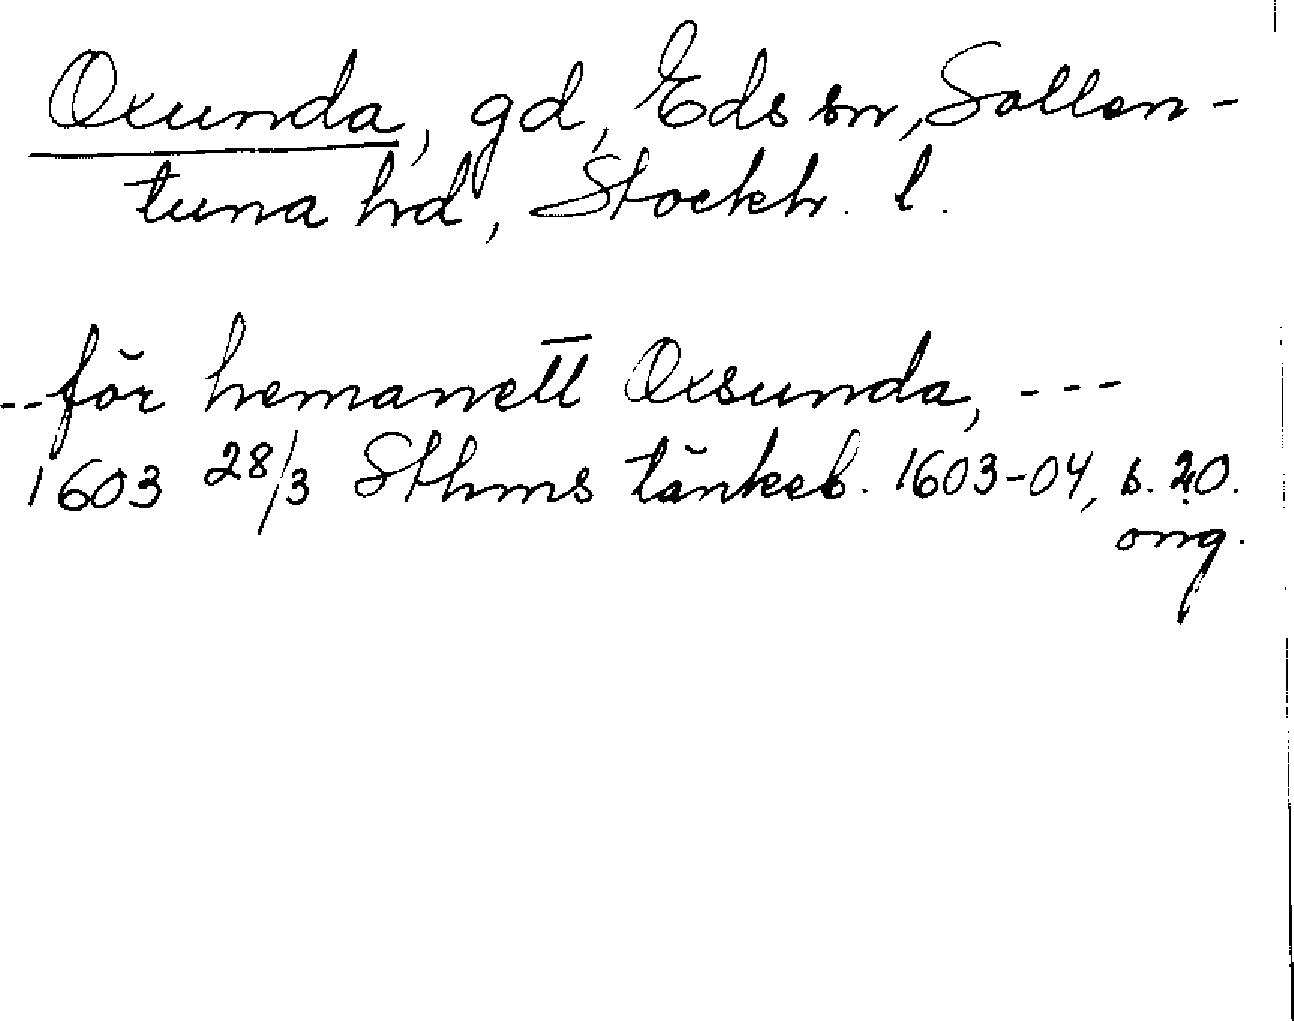 Oxunda, gd, Eds sn, Sollen-
tuna hd, Stockh. l.
--för hemanett Oxsunda, ---
1603 28/3 Sthms tänkeb. 1603-04, s. 20.